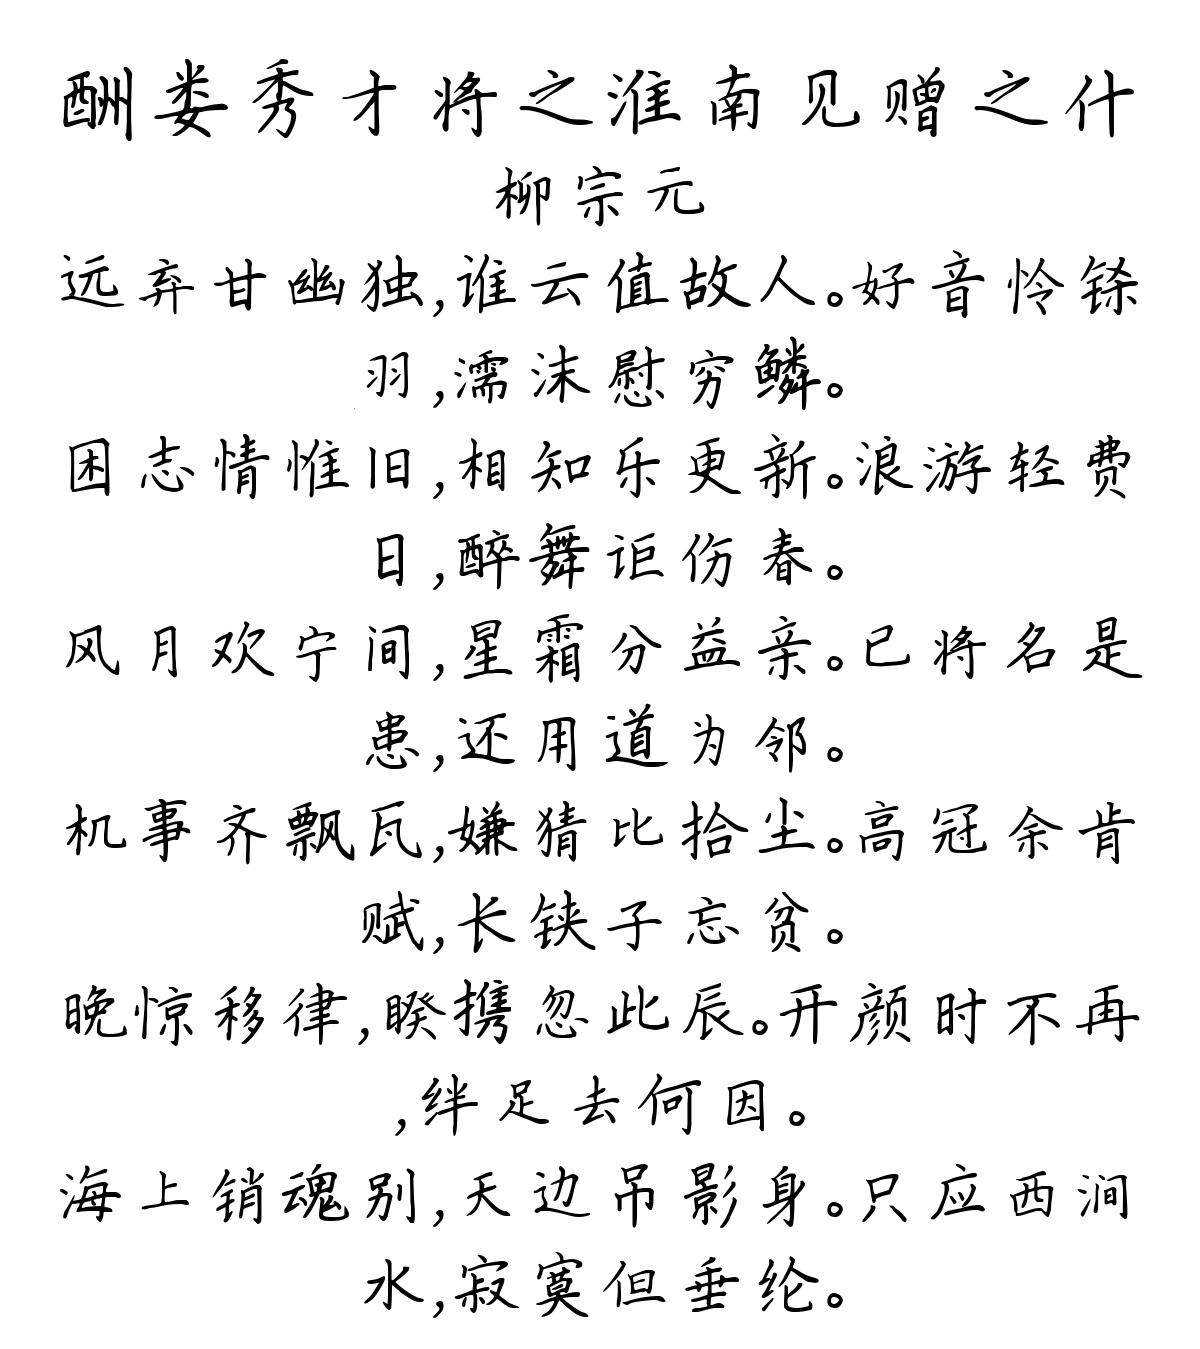 酬娄秀才将之淮南见赠之什
柳宗元
远弃甘幽独,谁云值故人。好音怜铩
羽,濡沫慰穷鳞。
困志情惟旧,相知乐更新。浪游轻费
日,醉舞讵伤春。
风月欢宁间,星霜分益亲。已将名是
患,还用道为邻。
机事齐飘瓦,嫌猜比拾尘。高冠余肯
赋,长铗子忘贫。
晚惊移律,睽携忽此辰。开颜时不再
,绊足去何因。
海上销魂别,天边吊影身。只应西涧
水,寂寞但垂纶。